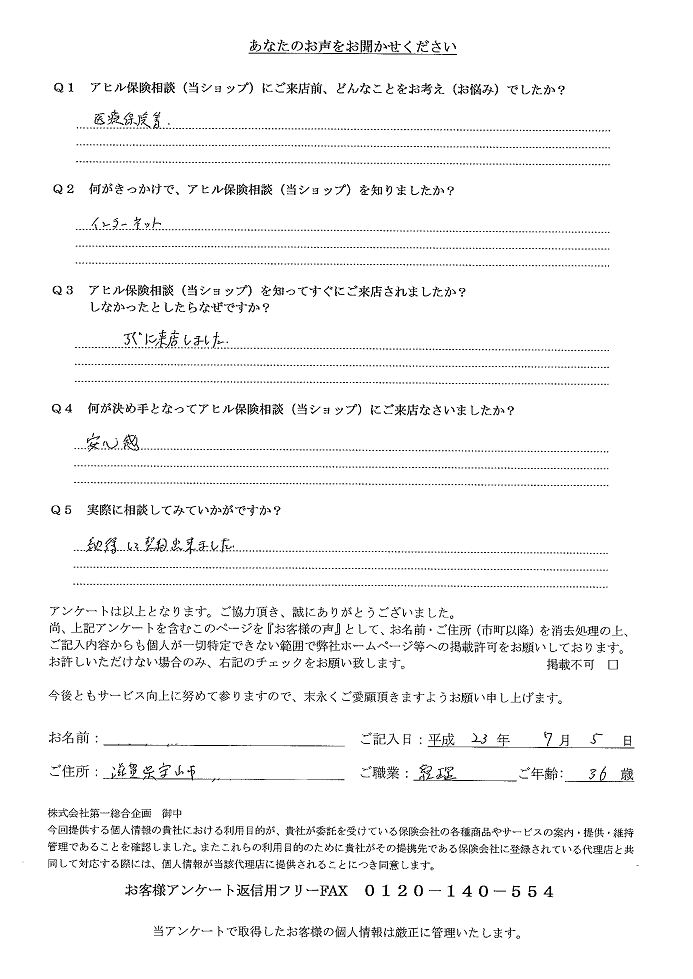 あなたのお声をお聞かせください
Q1 アヒル保険相談（当ショップ）にご来店前、どんなことをお考え（お悩み）でしたか？
医療保険著.
Q2 何がきっかけで、アヒル保険相談（当ショップ）を知りましたか？
インターネット
Q3 アヒル保険相談（当ショップ）を知ってすぐにご来店されましたか？
しなかったとしたらなぜですか？
すぐに来店しました.
Q4 何が決め手となってアヒル保険相談（当ショップ）にご来店なさいましたか？
安心感
Q5 実際に相談してみていかがですか？
納得して契約出来ました.
アンケートは以上となります。ご協力頂き、誠にありがとうございました。
尚、上記アンケートを含むこのページを『お客様の声』として、お名前・ご住所（市町以降）を消去処理の上、
ご記入内容からも個人が一切特定できない範囲で弊社ホームページ等への掲載許可をお願いしております。
お許しいただけない場合のみ、右記のチェックをお願い致します。 掲載不可 □
今後ともサービス向上に努めて参りますので、末永くご愛顧頂きますようお願い申し上げます。
お名前： ご記入日：平成 23 年 7 月 5 日
ご住所： 滋賀県守山市 ご職業： 経理 ご年齢： 36 歳
株式会社第一総合企画 御中
今回提供する個人情報の貴社における利用目的が、貴社が委託を受けている保険会社の各種商品やサービスの案内・提供・維持
管理であることを確認しました。またこれらの利用目的のために貴社がその提携先である保険会社に登録されている代理店と共
同して対応する際には、個人情報が当該代理店に提供されることにつき同意します。
お客様アンケート返信用フリーFAX 0120－140－554
当アンケートで取得したお客様の個人情報は厳正に管理いたします。